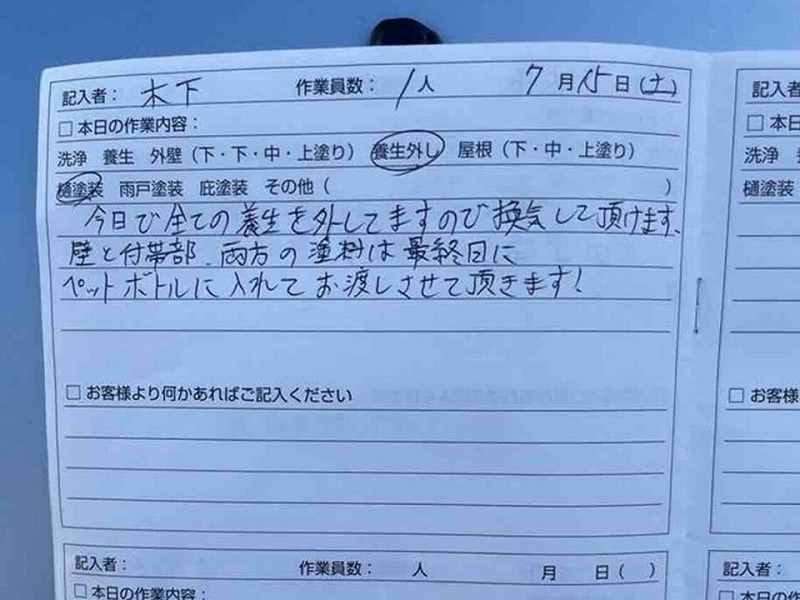 記入者： 木下 作業員数： 1人 7月15日（土） 記入者
□ 本日の作業内容： □ 本日
洗浄 養生 外壁（下・下・中・上塗り） 養生外し 屋根（下・中・上塗り） 洗浄 養
樋塗装 雨戸塗装 庇塗装 その他（ ） 樋塗装
今日で全ての養生を外してますので換気して頂けます、
壁と付帯部、両方の塗料は最終日に
ペットボトルに入れてお渡しさせて頂きます！
□ お客様より何かあればご記入ください □ お客様
記入者： 作業員数： 人 月 日（ ） 記入者：
□ 本日の作業内容： □ 本日の